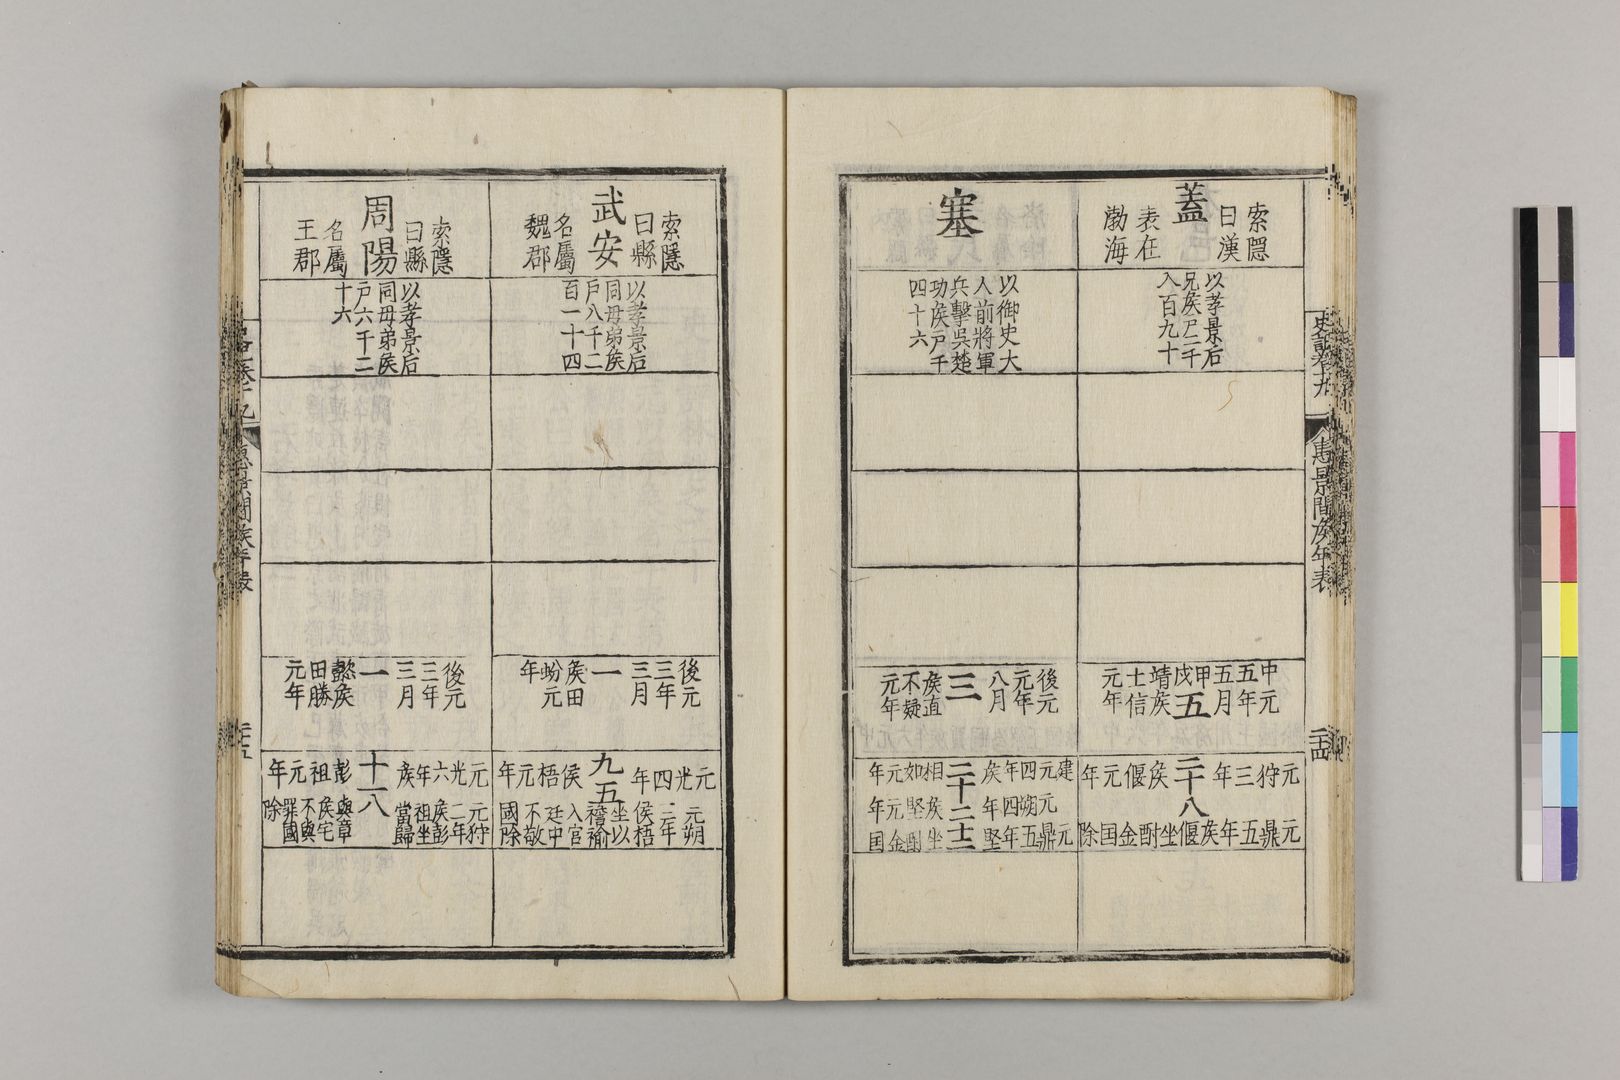 史記卷十九
惠景間侯年表
二十四
蓋
索隱曰漢表在渤海
以孝景后
兄矦戸二千
八百九十
中元五年五月甲戌
五
靖矦王信元年
二十八
元狩三年矦偃元年
元鼎五年矦偃坐酎金国除
塞
以御史大
人前將軍
兵擊吳楚
功矦戸千
四十六
後元元年八月
三
矦直不疑元年
建元四年矦相如元年
元朔四年矦堅元年
元鼎五年堅坐酎金国
武安
索隱曰縣名屬魏郡
以孝景后
同母弟矦
戸八千二
百一十四
後元三年三月
一
矦田蚡元年
九
五
元光四年侯梧元年
元朔三年侯梧坐以襜褕入宮廷中不敬國除
周陽
索隱曰縣名屬王郡
以孝景后
同母弟矦
戸六千二
十六
後元三年三月
一
懿矦田勝元年
十一
八
元光六年矦彭祖元年
元狩二年矦彭祖坐當歸與章侯宅不與罪國除